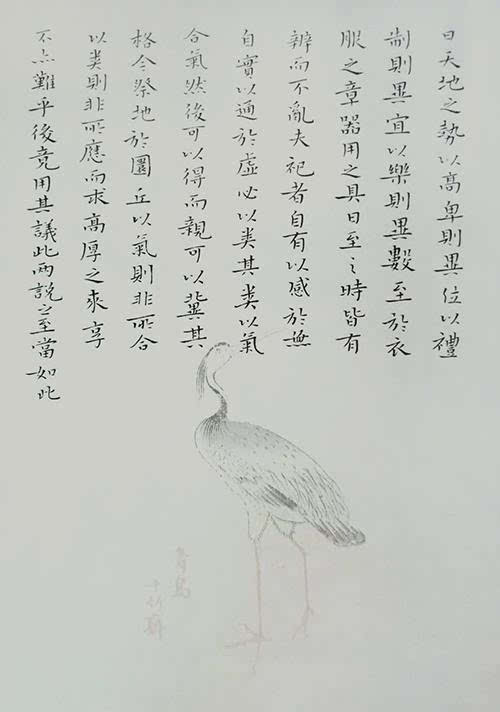 日天地之勢以高卑則異位以禮
制則異宜以樂則異數至於衣
服之章器用之具日至之時皆有
辨而不亂夫祀者自有以感於無
自實以通於虛必以类其类以氣
合氣然後可以得而親可以冀其
格今祭地於圜丘以氣則非所合
以类則非所應而求高厚之來享
不亦難乎後竟用其議此兩説之至當如此
青鳥
十竹齋